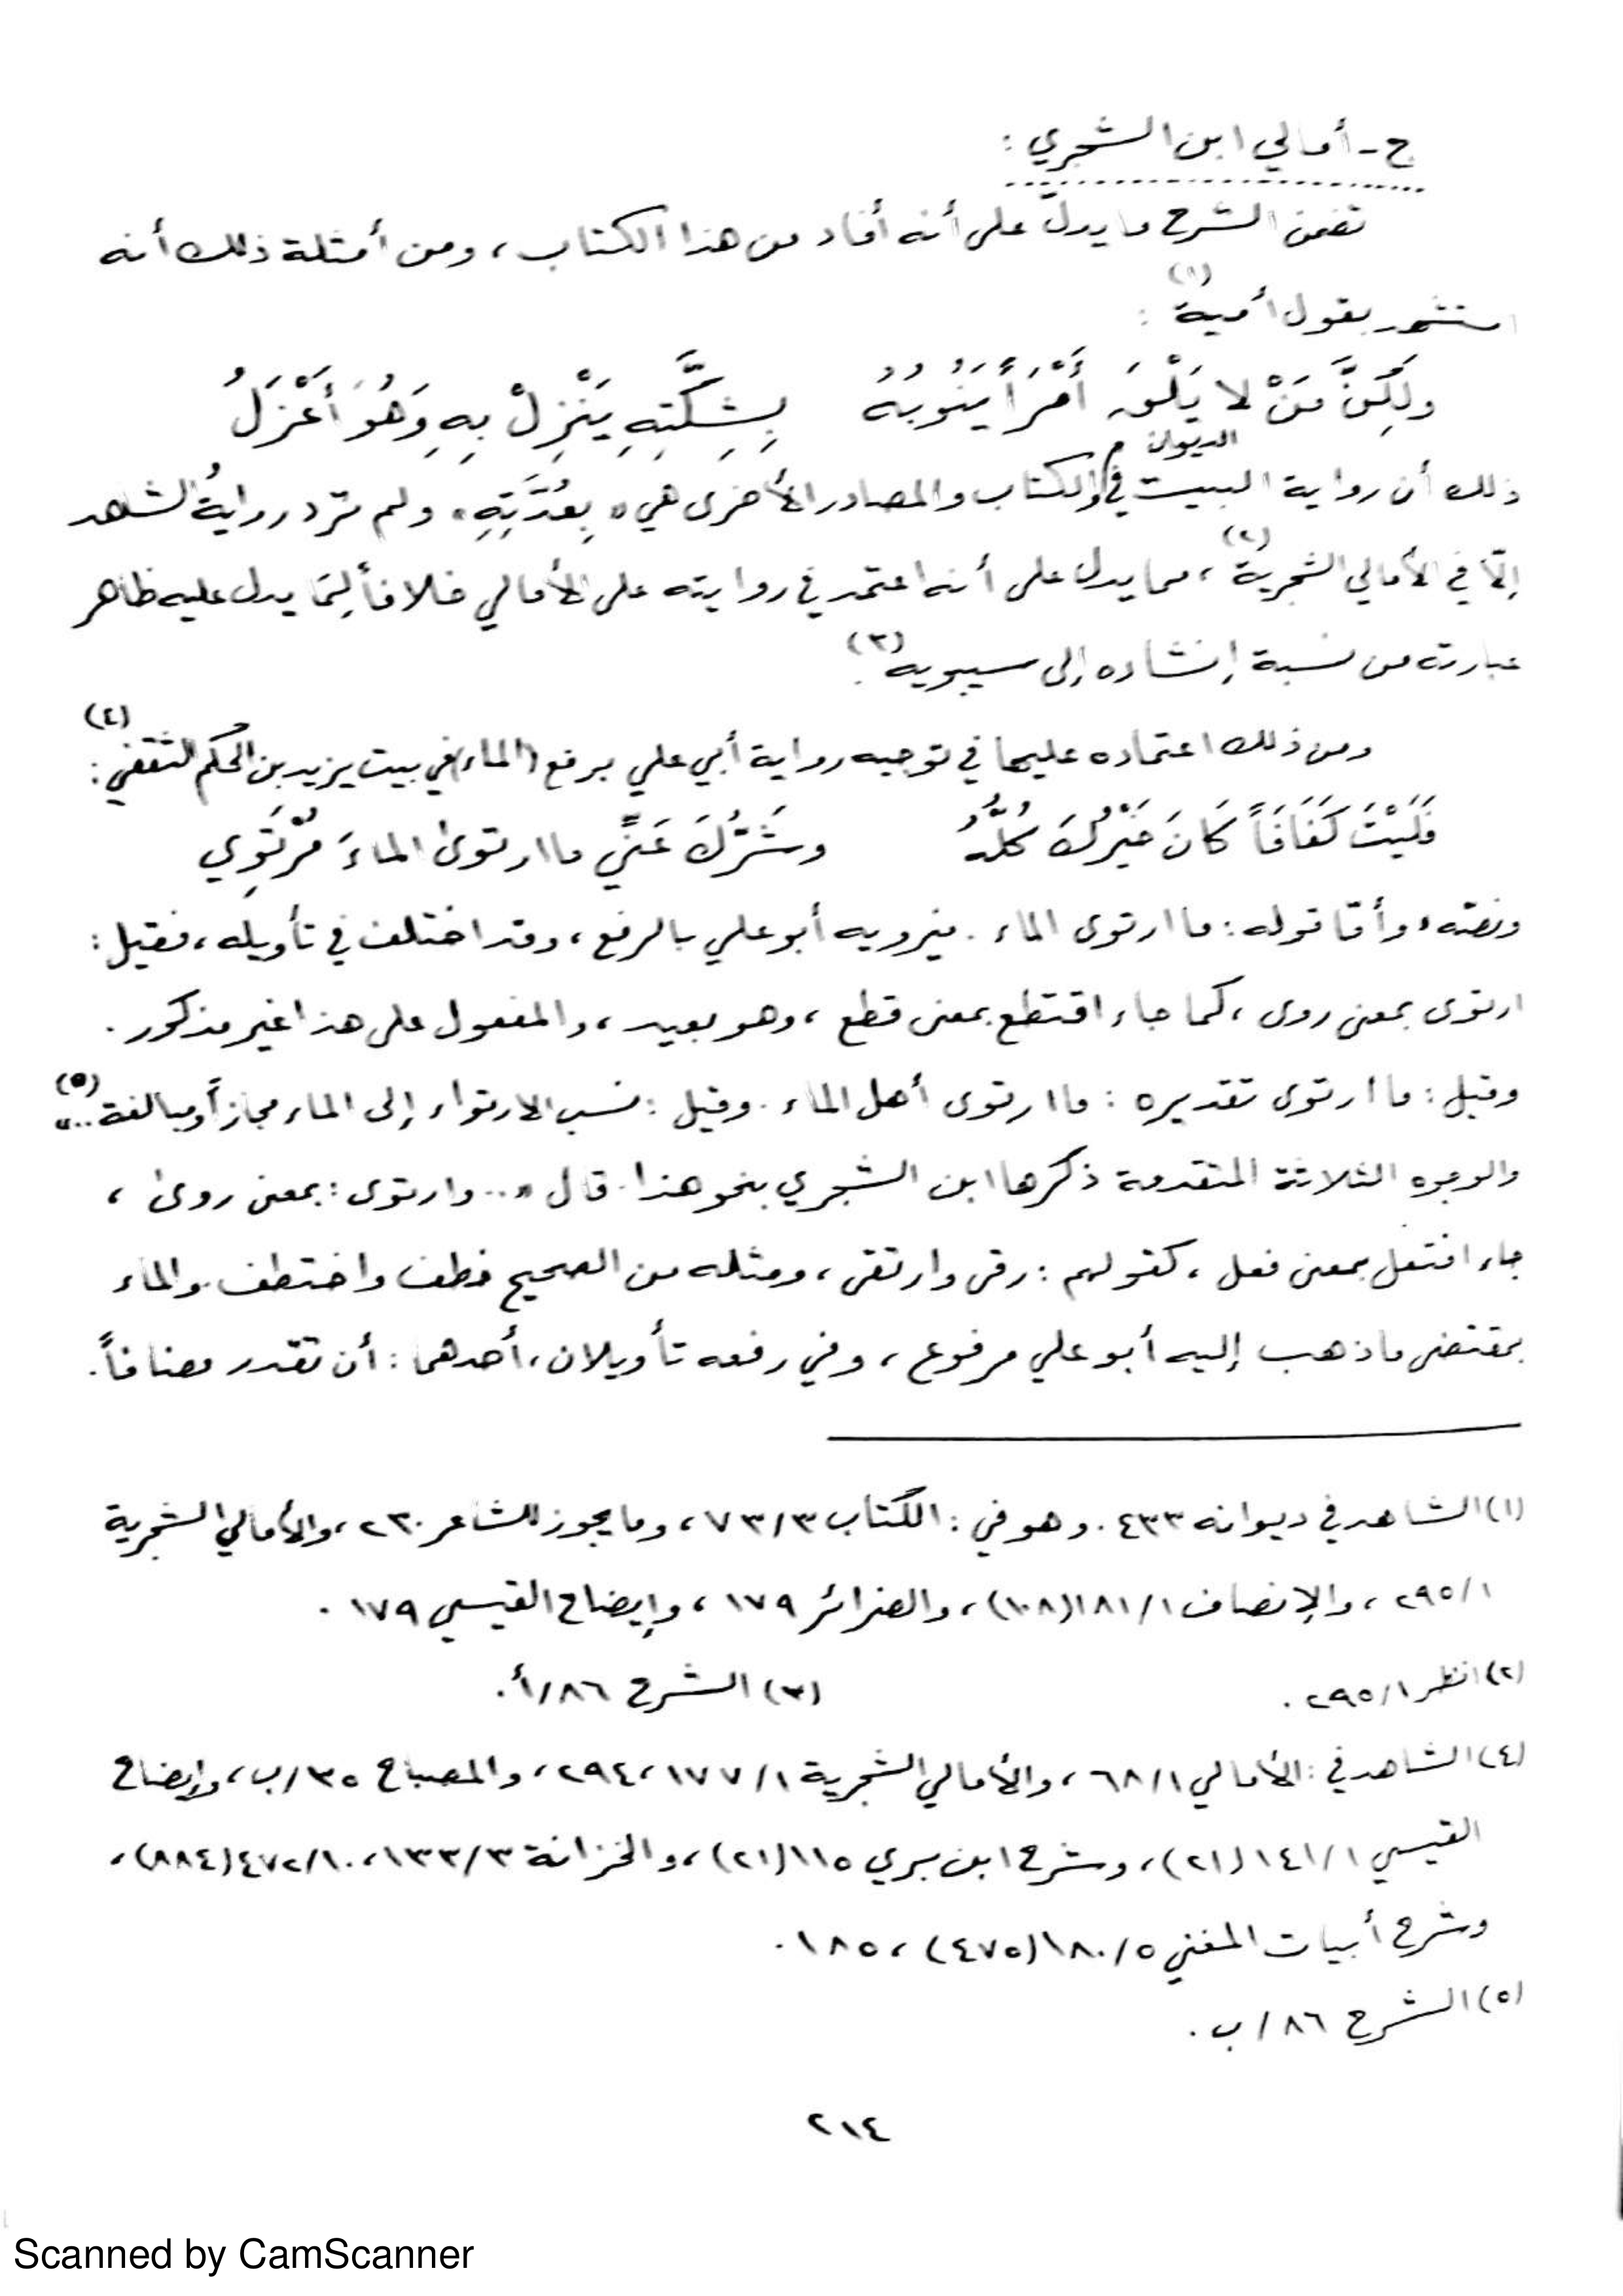 ج - أمالي ابن الشجري :
تضمن الشرح ما يدلّ على أنه أفاد من هذا الكتاب ، ومن أمثلة ذلك أنه
استشهد بقول أمية (١) :
ولكِنَّ مَنْ لا يَلْقَ أَمْرَاً يَنُوبُهُ بِشِكَّتِهِ يَنْزِلْ بِهِ وَهُوَ أَعْزَلُ
ذلك أن رواية البيت في الديوان والكتاب والمصادر الأخرى هي « بِعُدَّتِهِ » ولم ترد روايةُ الشاهد
إلّا في الأمالي الشجرية (٢) ، مما يدل على أنه اعتمد في روايته على الأمالي خلافاً لِمَا يدل عليه ظاهر
عبارته من نسبة إنشاده إلى سيبويه (٣) .
ومن ذلك اعتماده عليها في توجيه رواية أبي علي برفع (الماء) في بيت يزيد بن الحكم الثقفي (٤) :
فَلَيْتَ كَفَافَاً كَانَ خَيْرُكَ كُلُّهُ وشَرُّكَ عَنِّي ما ارتوىٰ الماءَ مُرْتَوِي
ونصّه « وأمّا قوله : ما ارتوى الماء . فيرويه أبو علي بالرفع ، وقد اختلف في تأويله ، فقيل :
ارتوى بمعنى روى ، كما جاء اقتطع بمعنى قطع ، وهو بعيد ، والمفعول على هذا غير مذكور .
وقيل : ما ارتوى تقديره : ما ارتوى أهل الماء . وقيل : نسب الارتواء إلى الماء مجازاً ومبالغة .. » (٥)
والوجوه الثلاثة المتقدمة ذكرها ابن الشجري بنحو هذا . قال « .. وارتوى : بمعنى روىٰ ،
جاء افتعل بمعنى فعل ، كقولهم : رقى وارتقى ، ومثله من الصحيح خطف واختطف . والماء
بمقتضى ما ذهب إليه أبو علي مرفوع ، وفي رفعه تأويلان ، أحدهما : أن تقدر مضافاً .
(١) الشاهد في ديوانه ٤٣٣ . وهو في : الكتاب ٧٣/٣ ، وما يجوز للشاعر ٢٣٠ ، والأمالي الشجرية
٢٩٥/١ ، والإنصاف ١٨١/١ (١٠٨) ، والضرائر ١٧٩ ، وإيضاح القيسي ١٧٩ .
(٢) انظر ٢٩٥/١ .
(٣) الشرح ٨٦/أ .
(٤) الشاهد في : الأمالي ٦٨/١ ، والأمالي الشجرية ١٧٧/١ ، ٢٩٤ ، والمصباح ٣٥/ب ، وإيضاح
القيسي ١٤١/١ (٢١) ، وشرح ابن بري ١١٥ (٢١) ، والخزانة ١٣٣/٣ ، ٤٧٢/١٠ (٨٨٤) ،
وشرح أبيات المغني ١٨٠/٥ (٤٧٥) ، ١٨٥ .
(٥) الشرح ٨٦/ب .
٢١٤
Scanned by CamScanner